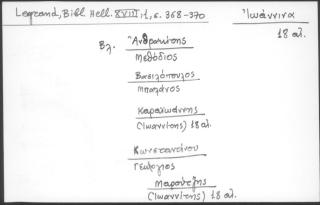 Legrand, Bibl. Hell. XVIII, 1, σ. 368-370
Ἰωάννινα
18 αἰ.
Βλ. Ἀνθρακίτης
Μεθόδιος
Βασιλόπουλος
Μπαλάνος
Καραϊωάννης
(Ἰωαννίτης) 18 αἰ.
Κωνσταντίνου
Γεώργιος
(Ἰωαννίτης) 18 αἰ.